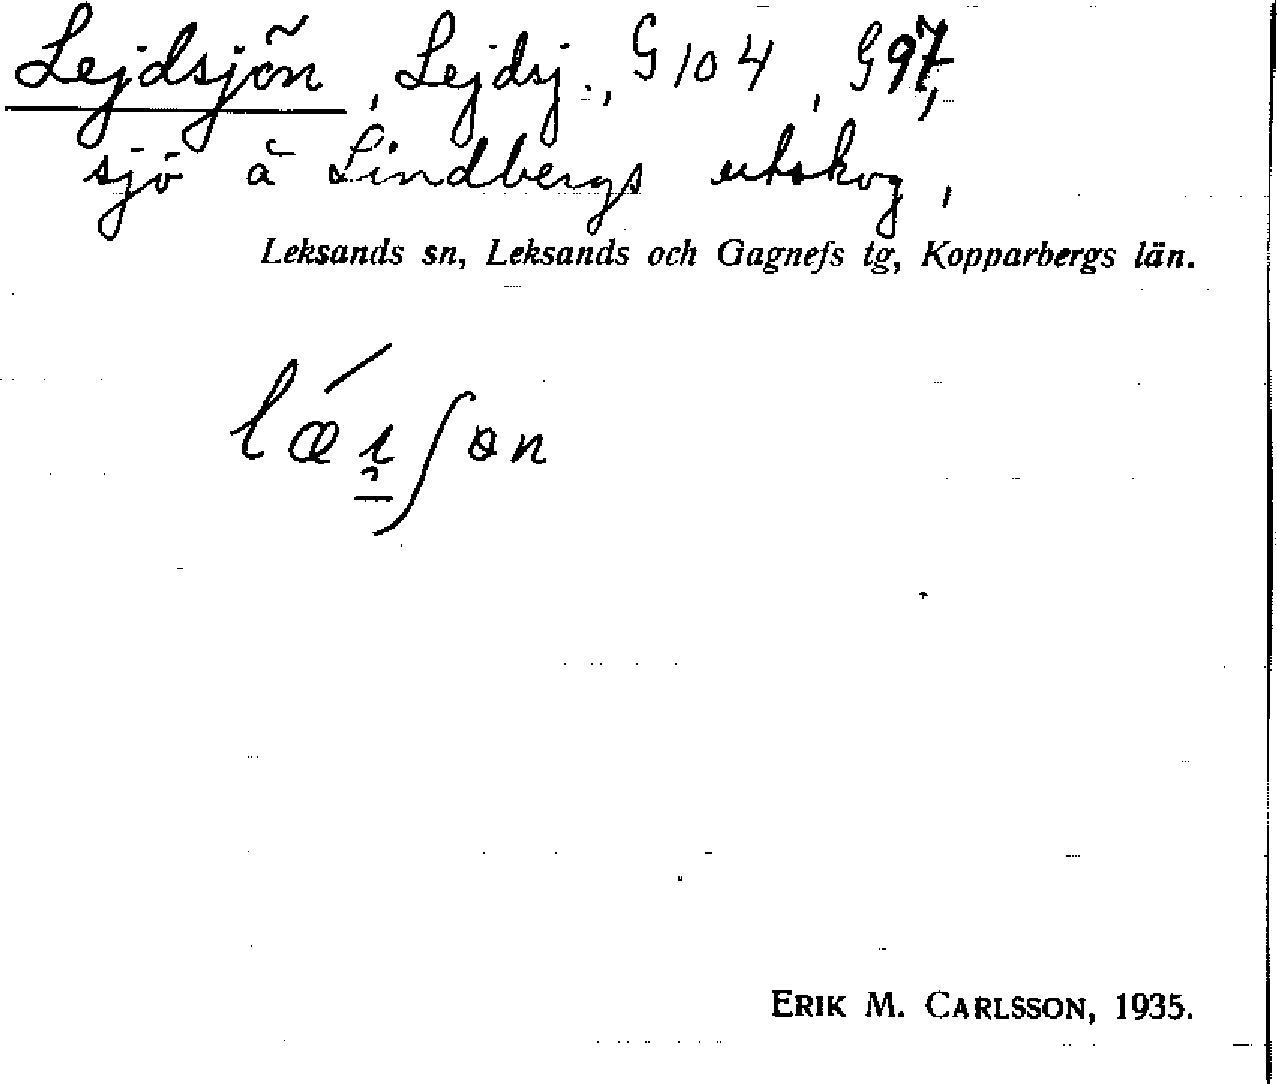 Lejdsjön, Lejdsj., G 104, G 97,
sjö å Lindbergs utskog,
Leksands sn, Leksands och Gagnefs tg, Kopparbergs län.
ERIK M. CARLSSON, 1935.